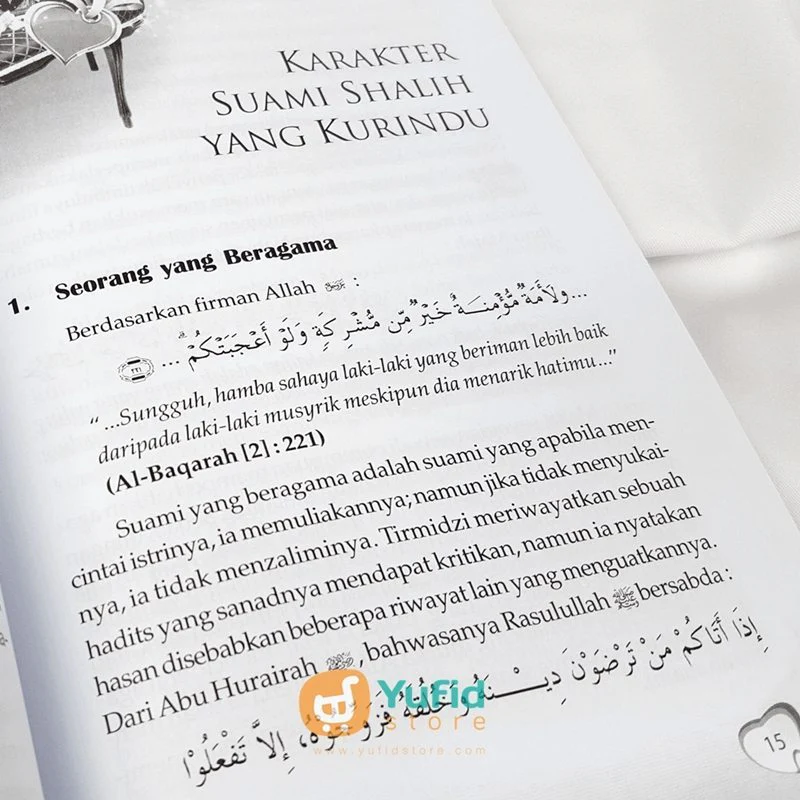 KARAKTER
SUAMI SHALIH
YANG KURINDU
1. Seorang yang Beragama
Berdasarkan firman Allah ﷻ :
...وَلَأَمَةٌ مُّؤْمِنَةٌ خَيْرٌ مِّن مُّشْرِكَةٍ وَلَوْ أَعْجَبَتْكُمْ ۗ ... ٢٢١
“ ...Sungguh, hamba sahaya laki-laki yang beriman lebih baik
daripada laki-laki musyrik meskipun dia menarik hatimu...”
(Al-Baqarah [2] : 221)
Suami yang beragama adalah suami yang apabila men-
cintai istrinya, ia memuliakannya; namun jika tidak menyukai-
nya, ia tidak menzaliminya. Tirmidzi meriwayatkan sebuah
hadits yang sanadnya mendapat kritikan, namun ia nyatakan
hasan disebabkan beberapa riwayat lain yang menguatkannya.
Dari Abu Hurairah, bahwasanya Rasulullah ﷺ bersabda :
إِذَا أَتَاكُمْ مَنْ تَرْضَوْنَ دِيْنَهُ وَخُلُقَهُ فَزَوِّجُوْهُ، إِلَّا تَفْعَلُوْا
Yufid
store
www.yufidstore.com
15